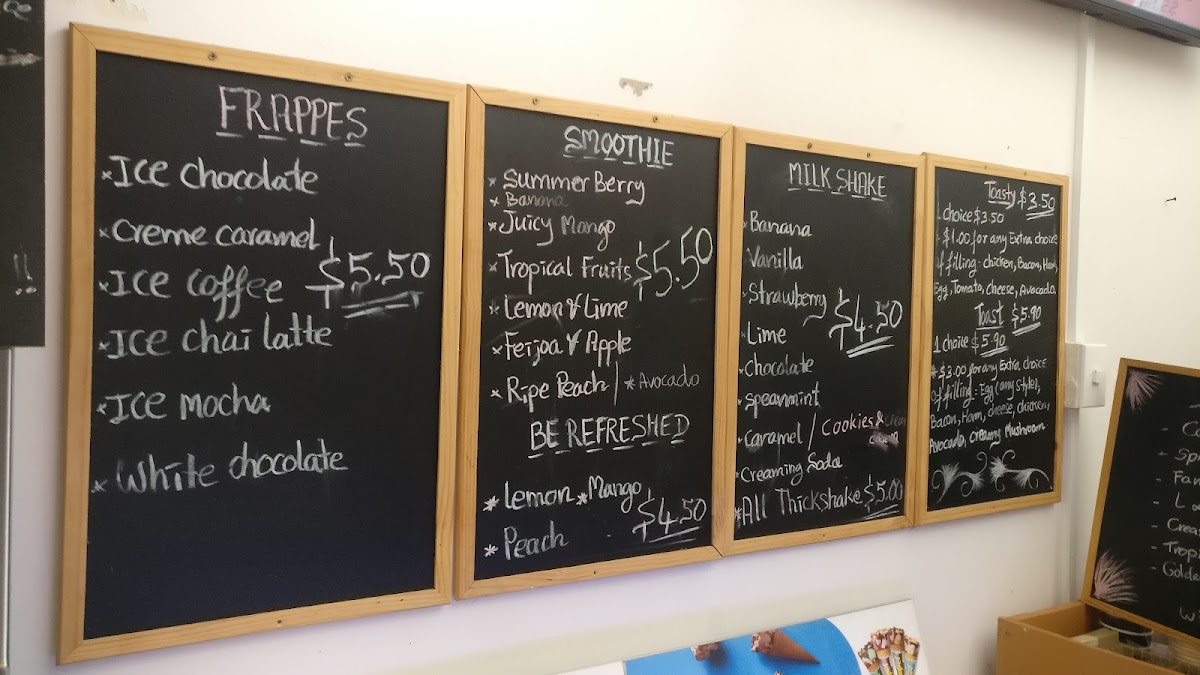 FRAPPES
* Ice chocolate
* Creme caramel
$5.50
* Ice coffee
* Ice chai latte
* Ice mocha
* White chocolate
SMOOTHIE
* Summer Berry
* Banana
* Juicy Mango
* Tropical Fruits
$5.50
* Lemon & Lime
* Feijoa & Apple
* Ripe Peach / * Avocado
BE REFRESHED
* Lemon * Mango
* Peach
$4.50
MILK SHAKE
* Banana
* Vanilla
* Strawberry
$4.50
* Lime
* chocolate
* spearmint
* caramel / Cookies & cream
* Creaming Soda
* All Thickshake $5.00
Toasty $3.50
1 choice $3.50
+ $1.00 for any Extra choice
of filling - chicken, Bacon, Ham,
Egg, Tomato, cheese, Avocado.
Toast $5.90
1 choice $5.90
+ $3.00 for any Extra choice
of filling - Egg (any style),
Bacon, Ham, cheese, chicken,
Avocado, creamy Mushroom